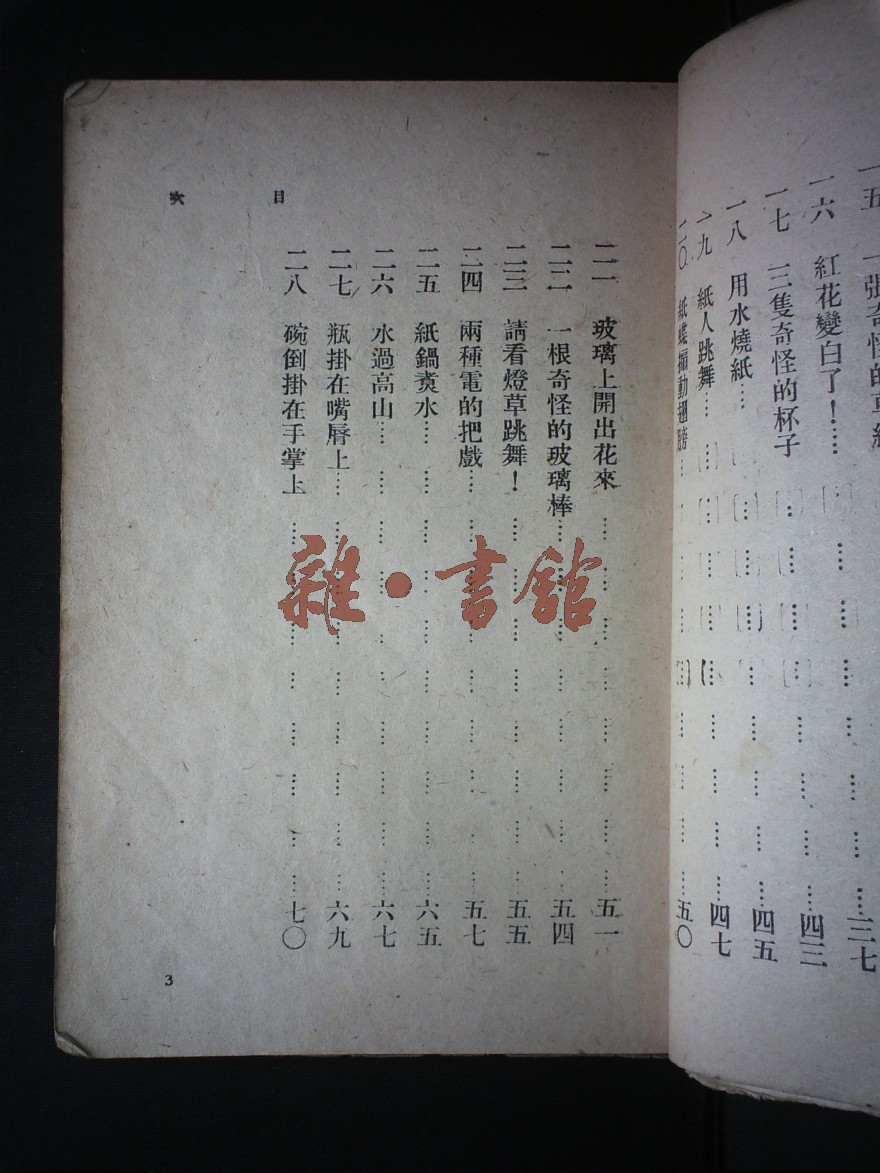 一五 一張奇怪的 三七
一六 紅花變白了！ 四三
一七 三隻奇怪的杯子
一八 用水燒紙 四五
一九 紙人跳舞 四七
二〇 紙蝶搧動翅膀 五〇
目次
二一 玻璃上開出花來 五一
二二 一根奇怪的玻璃棒 五四
二三 請看燈草跳舞！ 五五
二四 兩種電的把戲 五七
二五 紙鍋煑水 六五
二六 水過高山 六七
二七 瓶掛在嘴唇上 六九
二八 碗倒掛在手掌上 七〇
3
雜·書館